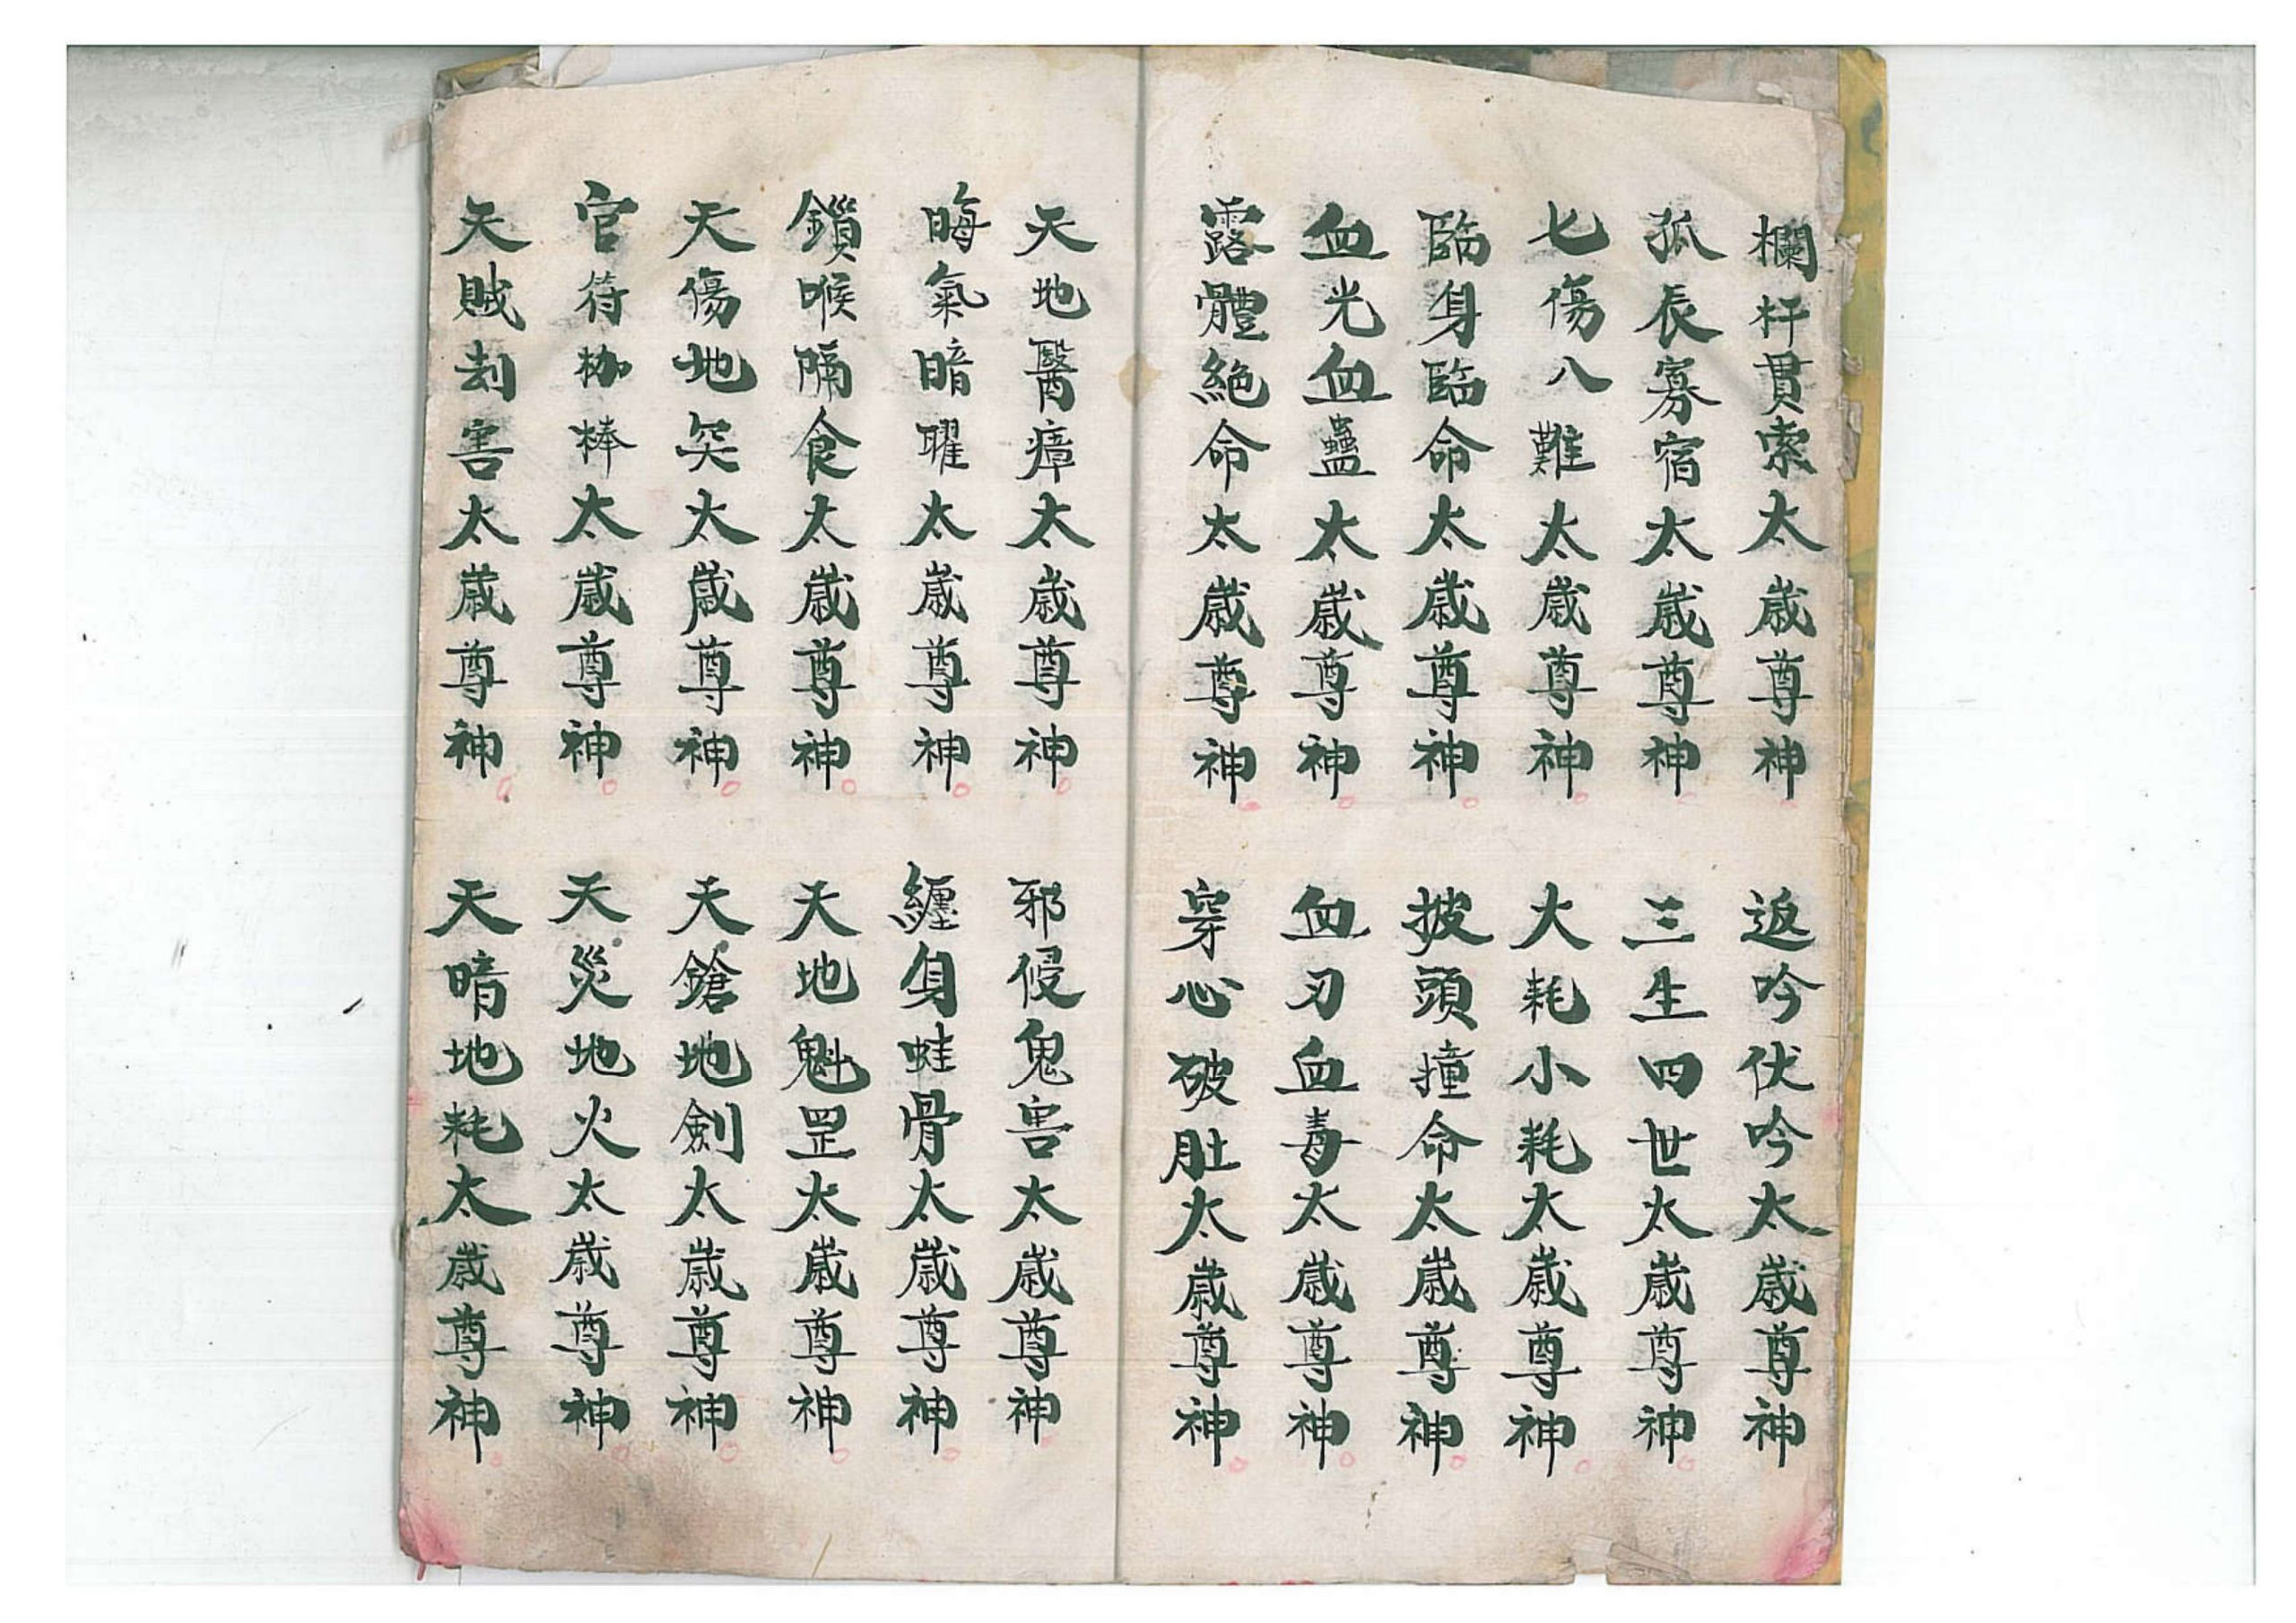 欄杆貫索太歲尊神 返吟伏吟太歲尊神
孤辰寡宿太歲尊神 三生四世太歲尊神
七傷八難太歲尊神 大耗小耗太歲尊神
臨身臨命太歲尊神 披頭撞命太歲尊神
血光血蠱太歲尊神 血刃血毒太歲尊神
露體絶命太歲尊神 穿心破肚太歲尊神
天地醫瘴太歲尊神 邪侵鬼害太歲尊神
晦氣暗曜太歲尊神 纏身蛀骨太歲尊神
鎖喉隔食太歲尊神 天地魁罡太歲尊神
天傷地突太歲尊神 天鎗地劍太歲尊神
官符枷棒太歲尊神 天災地火太歲尊神
天賊刦害太歲尊神 天暗地耗太歲尊神